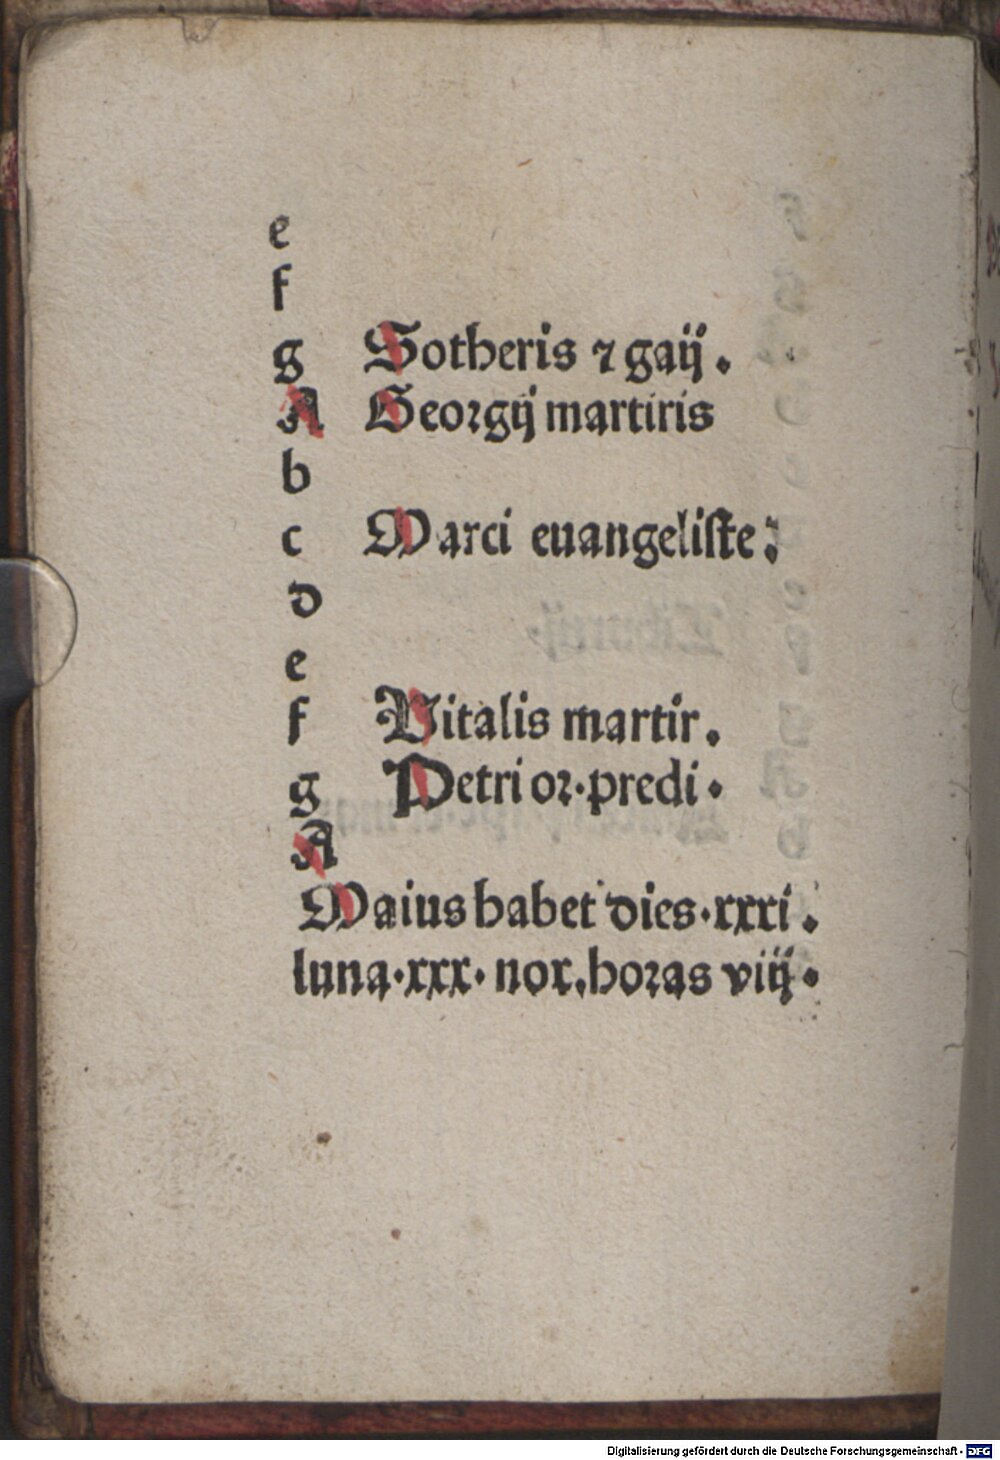 e
f
g Sotheris ⁊ gaij.
A Georgij martiris
b
c Marci euangeliste:
d
e
f Vitalis martir.
g Petri or·predi·
A
Maius habet dies·xxxi.
luna·xxx·nox.horas viij·
Digitalisierung gefördert durch die Deutsche Forschungsgemeinschaft · DFG